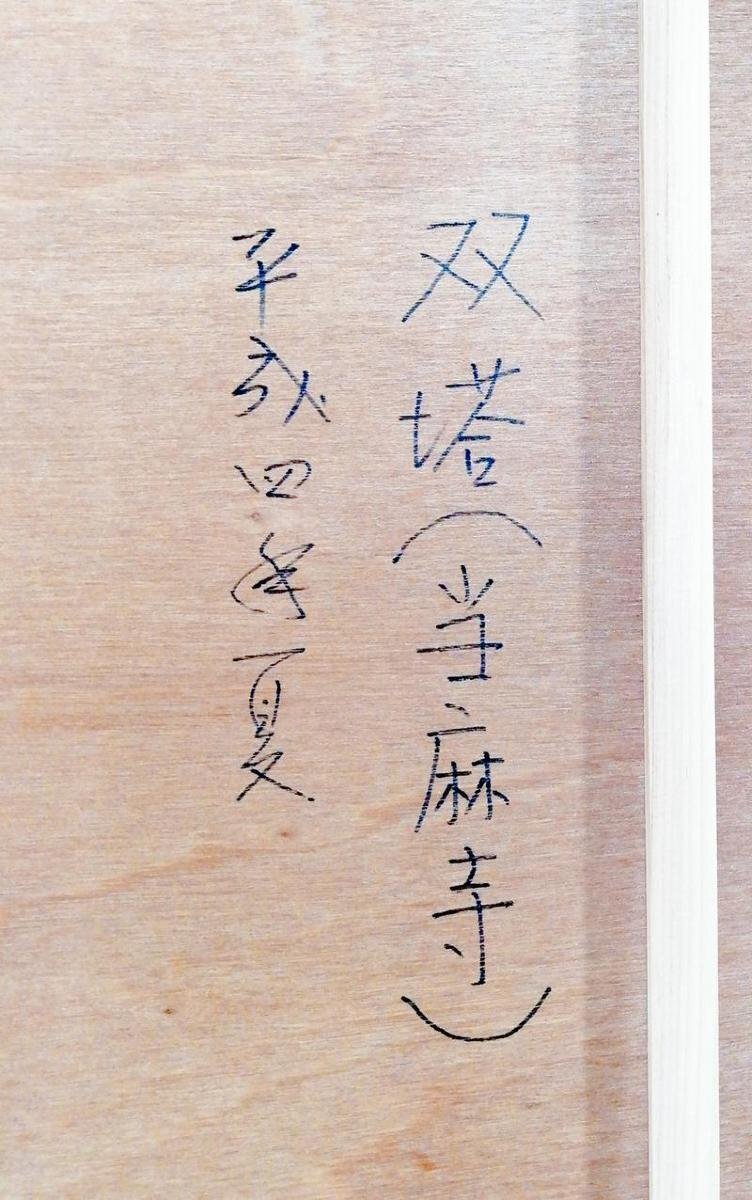 双塔(当麻寺)
平成四年夏